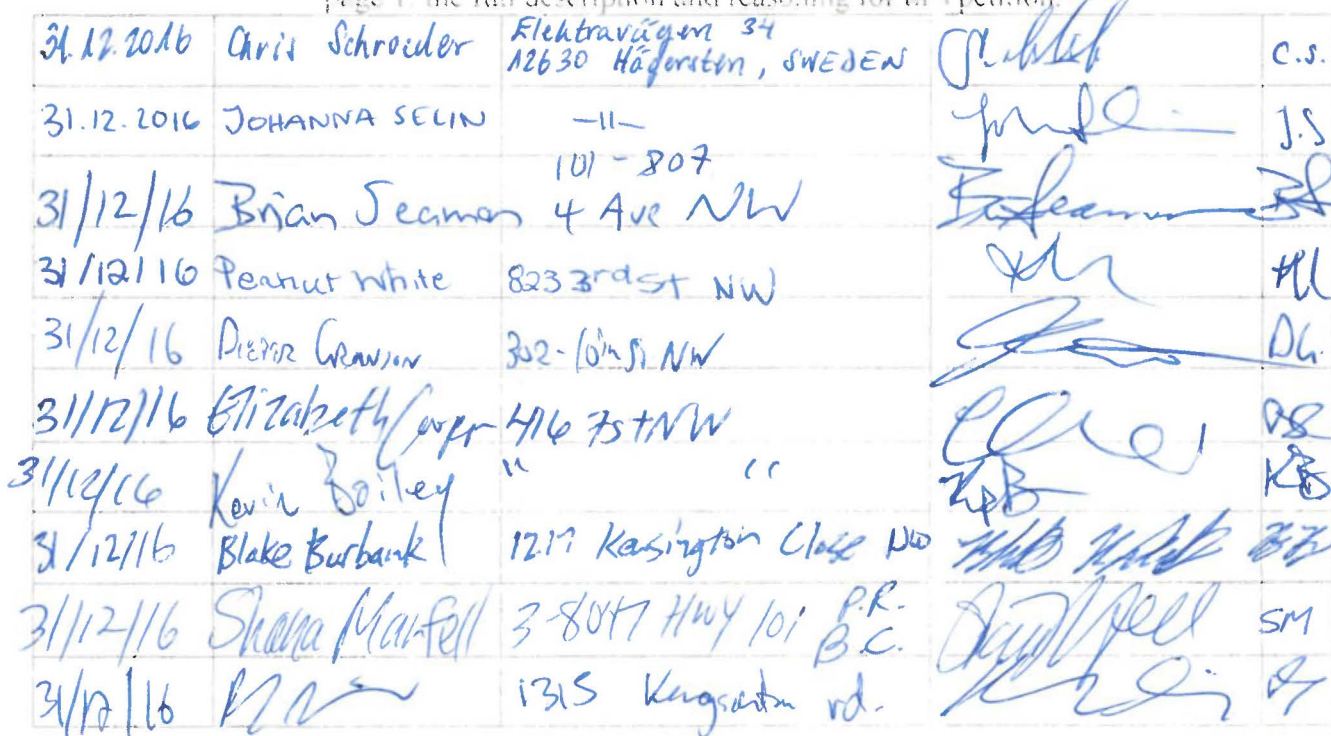 page 1. the full description and reasoning for this petition.
31.12.2016 Chris Schroeder Elektravägen 34 C.S.
12630 Hägersten, SWEDEN
31.12.2016 JOHANNA SELIN -11- J.S
101-807
31/12/16 Brian Seaman 4 Ave NW BS
31/12/16 Peanut White 823 3rd St NW
31/12/16 302-10th St NW DG.
31/12/16 Elizabeth 416 7st NW
31/12/16 Kevin Boiley " " KB
31/12/16 Blake Burbank 1217 Kensington Close NW BB
31/12/16 Shana 3-8047 HWY 101 P.R. SM
B.C.
31/12/16 1315 rd.